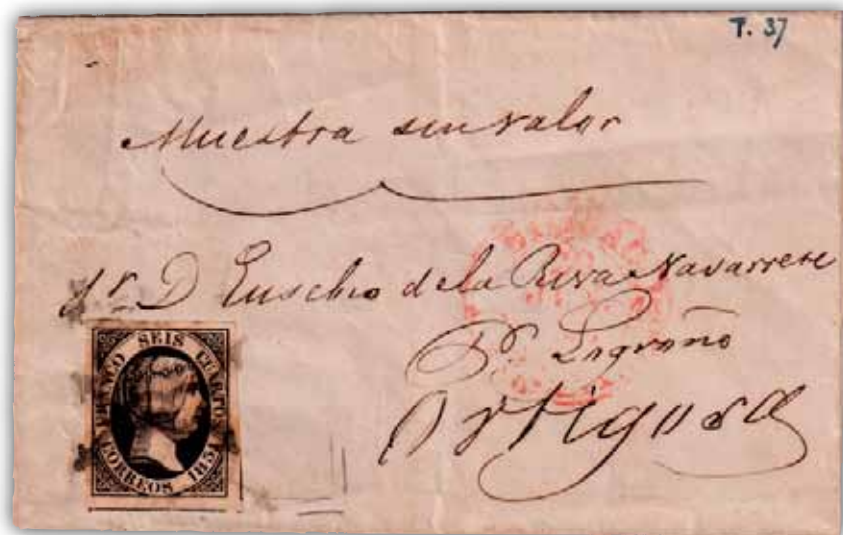 T. 37
Muestra sin valor
Sr. D Eusebio de la Riva Navarrete
Pr. Logroño
Ortigosa
FRANCO SEIS CUARTOS
CORREOS 1851